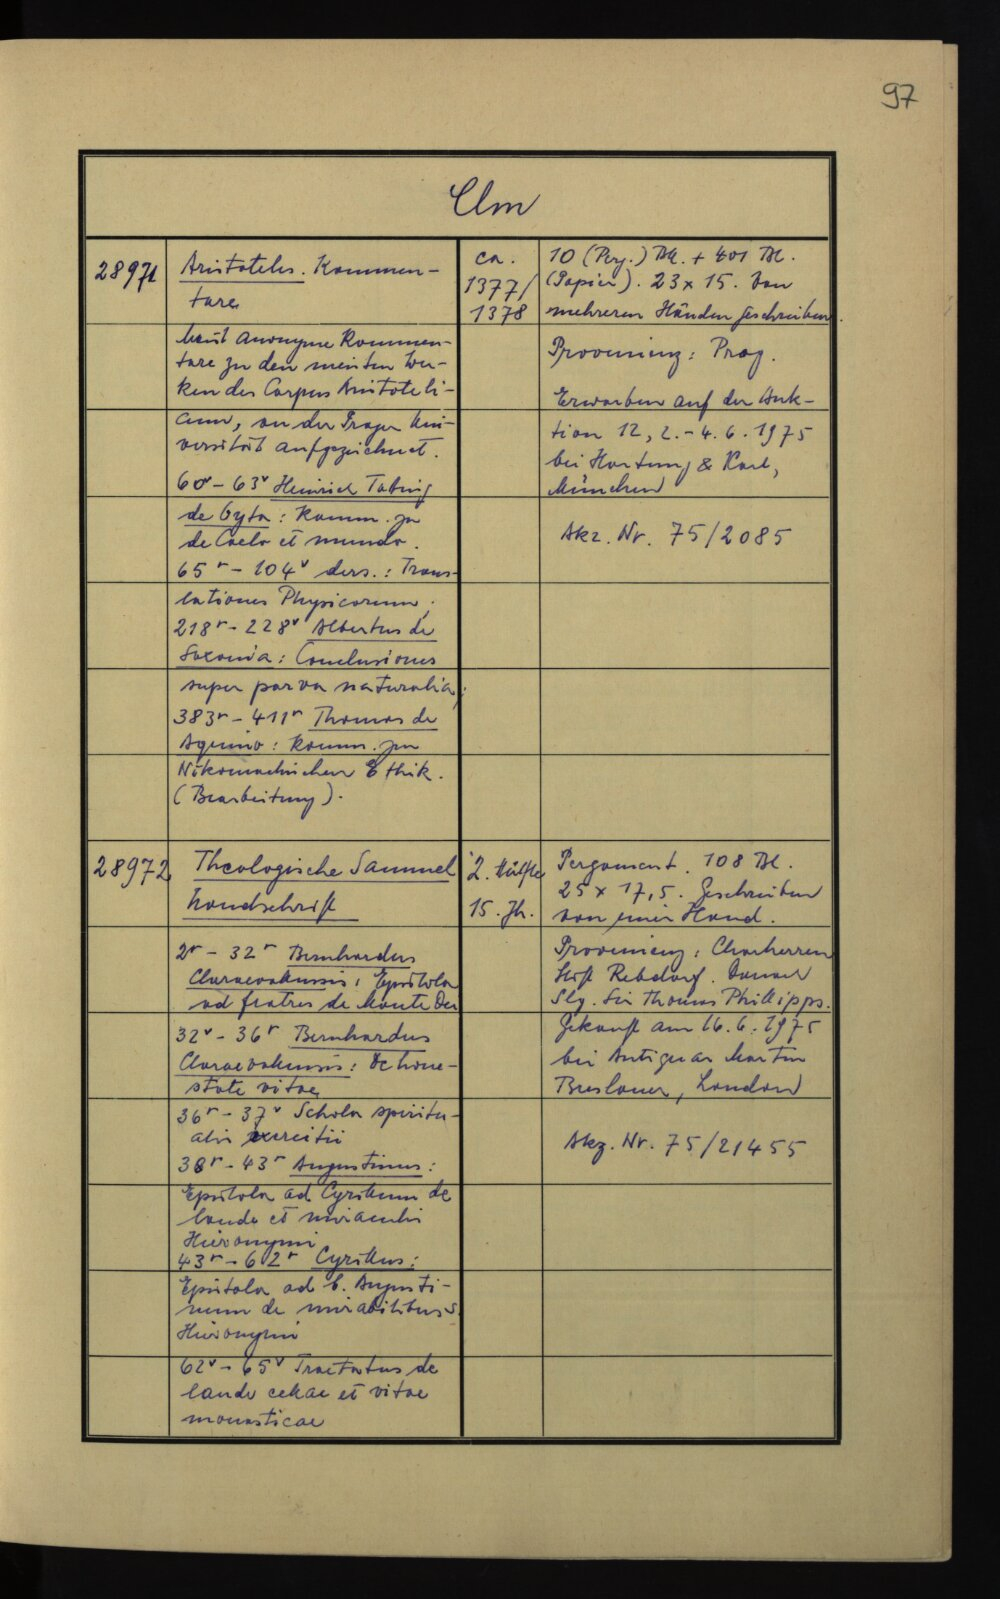 97
Clm
28971
Aristoteles. Kommen-
tare
meist anonyme Kommen-
tare zu den meisten Wer-
ken des Corpus Aristoteli-
cum, an der Prager Uni-
versität aufgezeichnet.
60r - 63v Heinrich Totting
de Oyta: Komm. zu
de Caelo et mundo.
65r - 104v ders.: Trans-
lationes Physicorum;
218r - 228v Albertus de
Saxonia: Conclusiones
super parva naturalia;
383r - 411r Thomas de
Aquino: Komm. zur
Nikomachischen Ethik.
(Bearbeitung).
ca.
1377/
1378
10 (Perg.) Bl. + 401 Bl.
(Papier). 23 x 15. Von
mehreren Händen geschrieben.
Provenienz: Prag.
Erworben auf der Auk-
tion 12, 2.-4.6.1975
bei Hartung & Karl,
München
Akz. Nr. 75/2085
28972
Theologische Sammel
handschrift
2r - 32r Bernhardus
Claraevallensis: Epistola
ad fratres de Monte Dei
32v - 36r Bernhardus
Claraevallensis: De hone-
state vitae
36r - 37v Schola spiritu-
alis exercitii
38r - 43r Augustinus:
Epistola ad Cyrillum de
laude et miraculis
Hieronymi
43r - 62r Cyrillus:
Epistola ad b. Augusti-
num de mirabilibus s.
Hieronymi
62v - 65v Tractatus de
laude cellae et vitae
monasticae
2. Hälfte
15. Jh.
Pergament. 108 Bl.
25 x 17,5. Geschrieben
von einer Hand.
Provenienz: Chorherren
Stift Rebdorf. Danach
Slg. Sir Thomas Phillipps.
Gekauft am 16.6.1975
bei Antiquar Martin
Breslauer, London
Akz. Nr. 75/21455